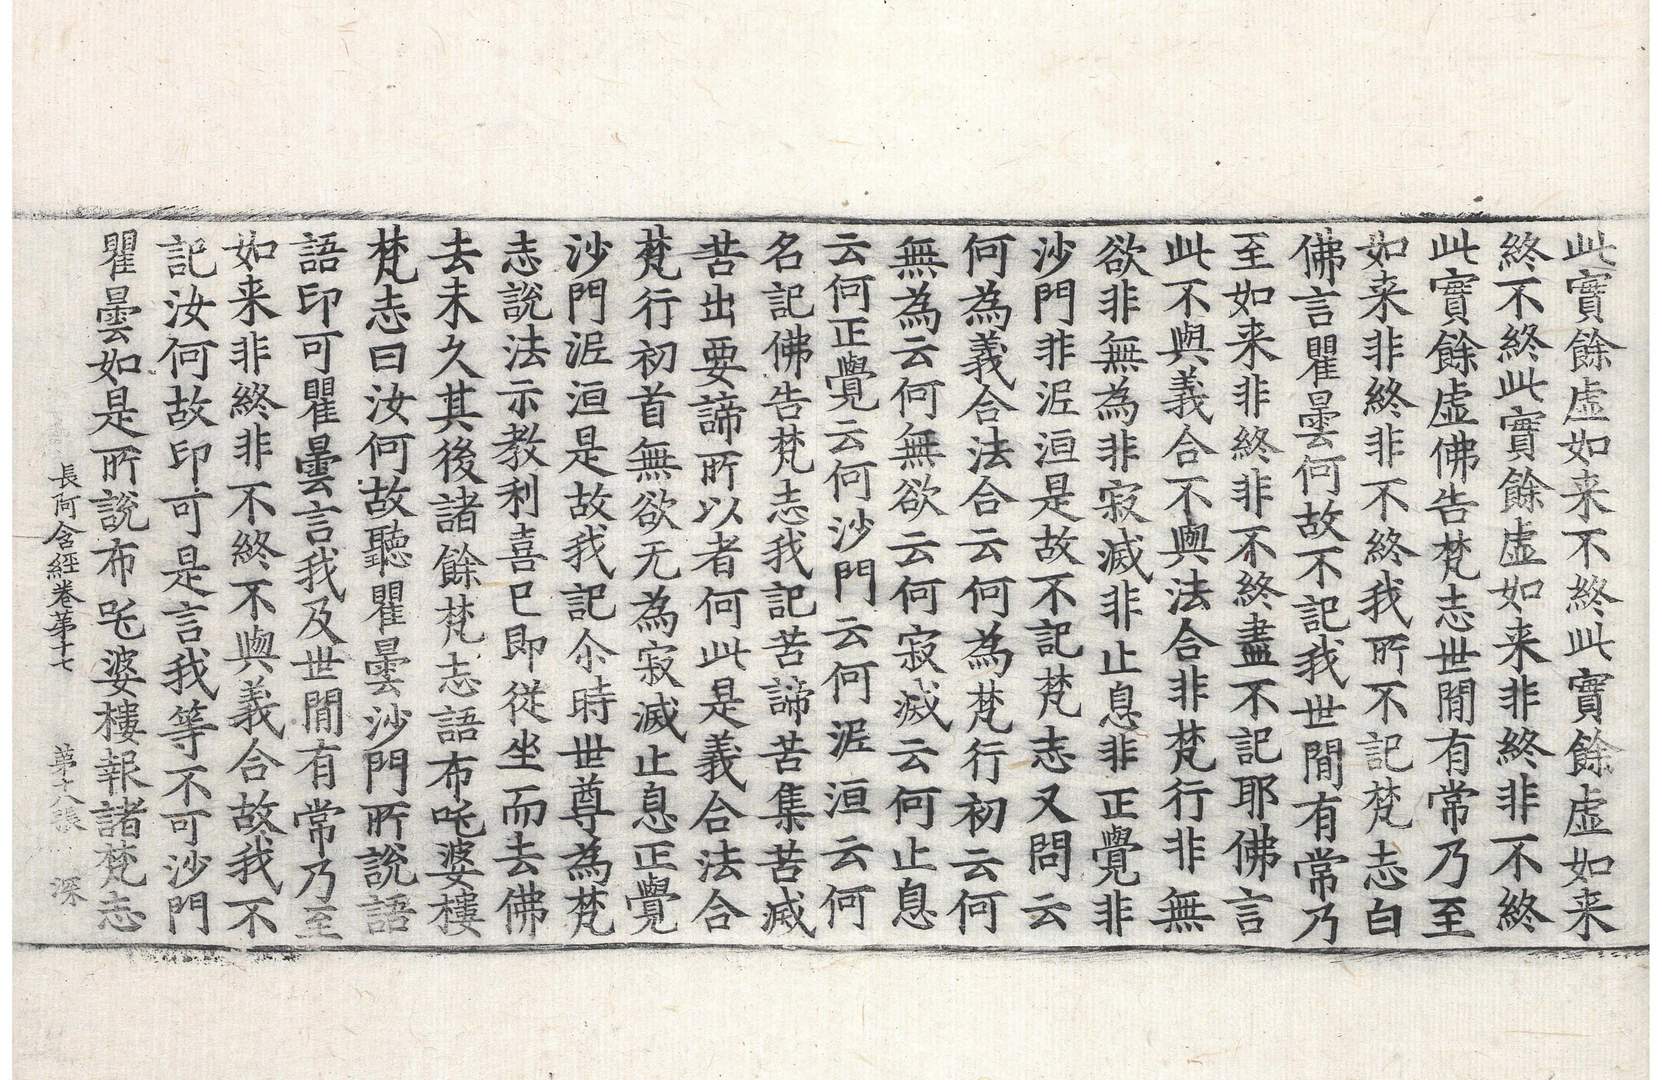 此實餘虛如来不終此實餘虛如来
終不終此實餘虛如来非終非不終
此實餘虛佛告梵志世閒有常乃至
如来非終非不終我所不記梵志白
佛言瞿曇何故不記我世閒有常乃
至如来非終非不終盡不記耶佛言
此不與義合不與法合非梵行非無
欲非無為非寂滅非止息非正覺非
沙門非泥洹是故不記梵志又問云
何為義合法合云何為梵行初云何
無為云何無欲云何寂滅云何止息
云何正覺云何沙門云何泥洹云何
名記佛告梵志我記苦諦苦集苦滅
苦出要諦所以者何此是義合法合
梵行初首無欲无為寂滅止息正覺
沙門泥洹是故我記尒時世尊為梵
志說法示教利喜已即從坐而去佛
去未久其後諸餘梵志語布吒婆樓
梵志曰汝何故聽瞿曇沙門所說語
語印可瞿曇言我及世閒有常乃至
如来非終非不終不與義合故我不
記汝何故印可是言我等不可沙門
瞿曇如是所說布吒婆樓報諸梵志
長阿含經卷第十七 第十八張 深